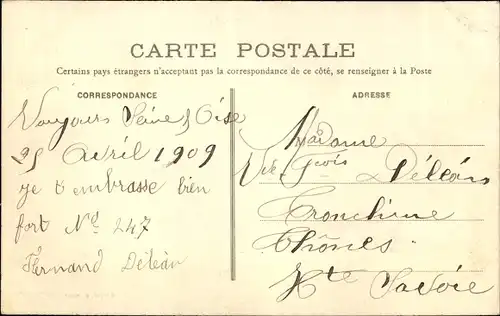 CARTE POSTALE
Certains pays étrangers n'acceptant pas la correspondance de ce côté, se renseigner à la Poste
CORRESPONDANCE
ADRESSE
Vaujours Seine & Oise
25 avril 1909
je t'embrasse bien
fort Nd 247
Fernand Déléan
Madame
Vve Gvois Déléan
Thônes
Hte Savoie